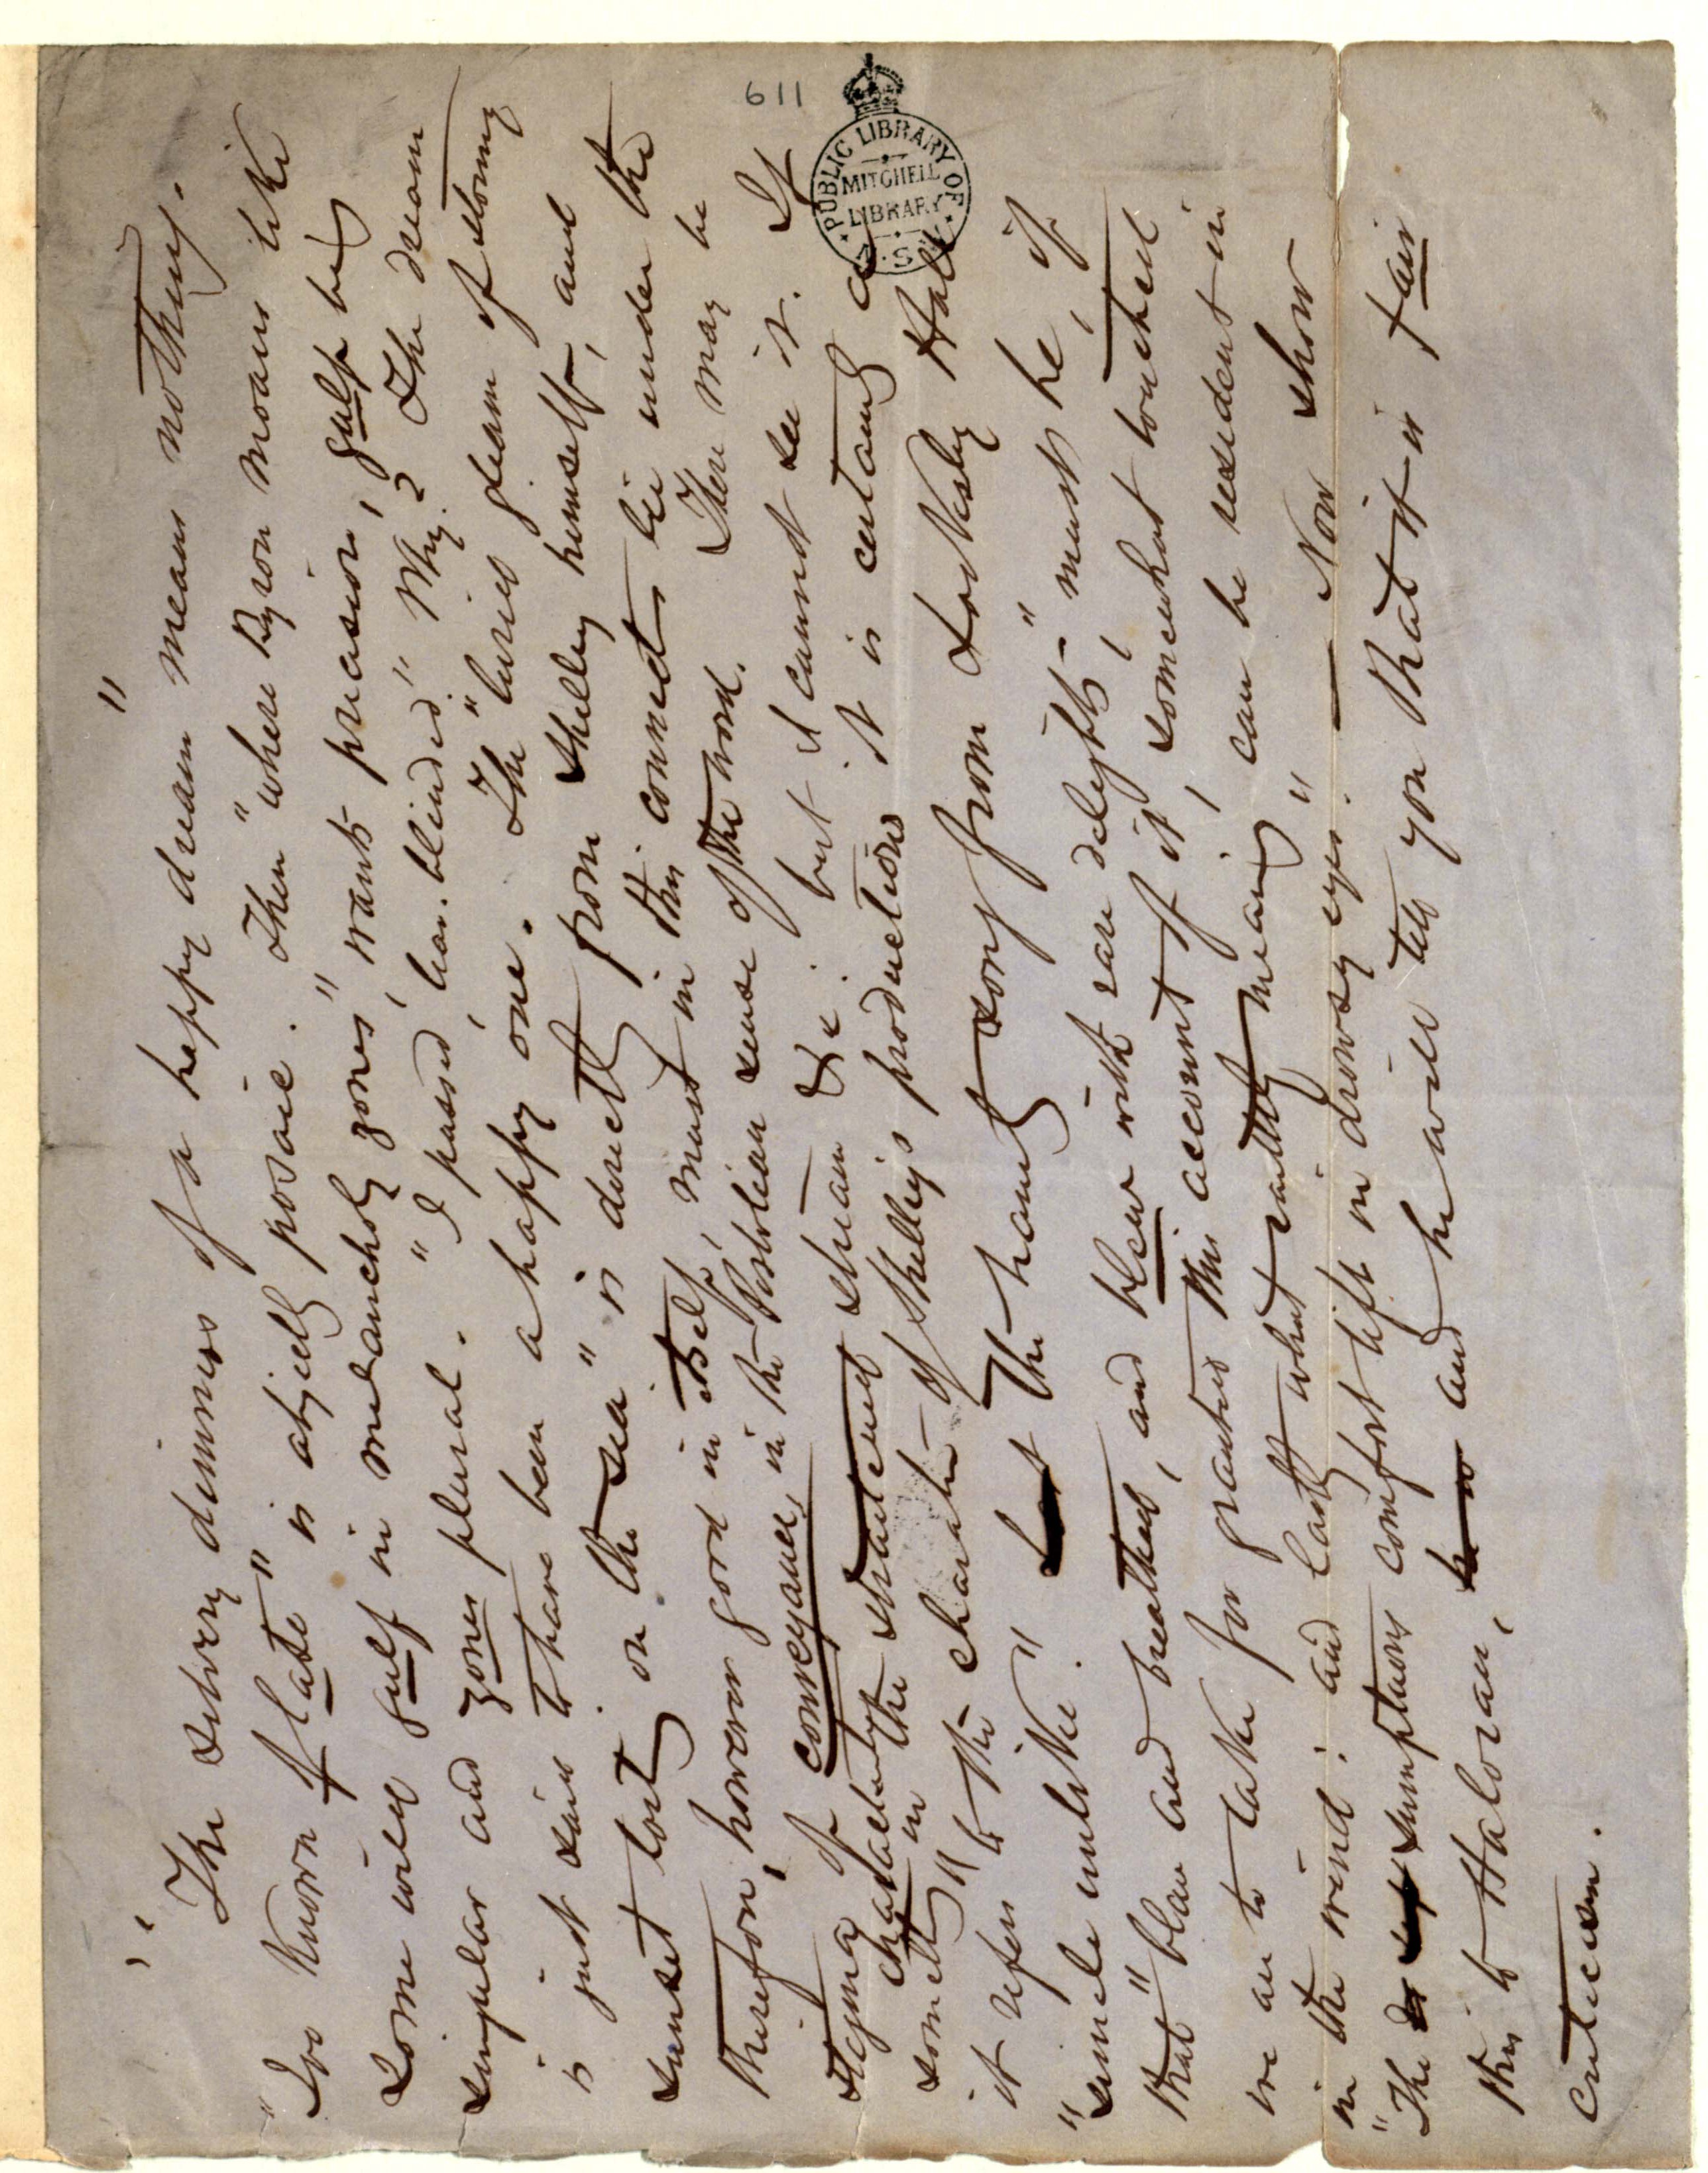 "The silvery dimness of a happy dream" means nothing.
"Too known of late" is abjectly prosaic. Then "where Byron moans like
some wild gulf in melancholy zones," wants precision, gulf being
singular and zones plural. "I passed, tear-blinded." Why? The dream
is just said to have been a happy one. The "lurid gleam of stormy
sunset lost on the sea" is directly from Shelley himself, and
therefore, however good in itself, must in this connect lie under the
stigma of conveyance, in the Pistolean sense of the word. There may be
character in the straitened stream &c. but I cannot see it. If
something in the character of Shelley's productions it is certainly a
it refers to the
"simile unlike." But the haunting song from Locksley Hall
that "blew and breathed, and blew with rare delight," must be, if
we are to take for granted this account of it, somewhat touched
in the wind: and lastly what earthly meaning can be resident in
"The sumptuous comfort left in drowsy eyes." — Now show
this to Haloran, and he will tell you that it is fair
criticism.
611
PUBLIC LIBRARY OF N.S.W.
MITCHELL
LIBRARY